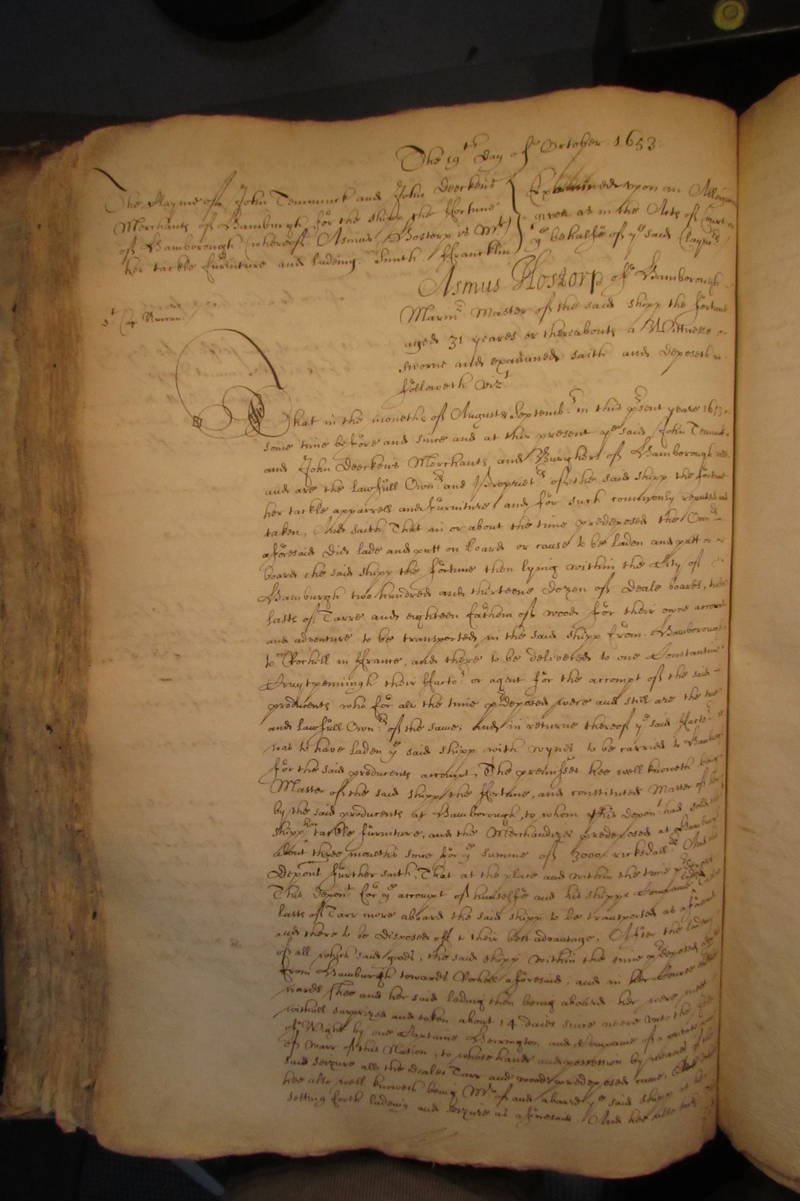 The 19th Day of October 1653
The Clayme of John Temminck and John Deerkens
Merchants of Hamburgh for the shipp the Fortune
of Hamborough (whereof Asmus Hostorp is Mr)
her tackle furniture and ladeing. Smith Francklin
Examined upon an Allegation
given in in the Acts of Court on
ye behalfe of ye said Claymers
Asmus Hostorp of Hamborough
Marinr Master of the said shipp the Fortune
aged 31 yeares or thereabouts a Wittnesse
sworne and examined saith and deposeth as
followeth vizt
That in the moneths of August & Septembr in this present yeare 1653
some time before and since and at this present ye said John Temminck
and John Deerkens Merchants and Burghers of Hamborough were
and are the lawfull Ownrs and Proprietrs of the said shipp the Fortune
her tackle apparrell and furniture and for such commonly reputed and
taken, And saith That in or about the time predeposed the
aforesaid did lade and putt on board or cause to be laden and putt on
board the said shipp the Fortune then lying within the City of
Hamburgh two hundred and thirteene dozen of deale boards,
lasts of Tarre and eighteen fathom of wood for their owne accompt
and adventure to be transported in the said shipp from Hamborough
to Rochell in France, and there to be delivered to one Constantine
their Factor or agent for the accompt of the said
producents who for all the time predeposed were and still are the true
and lawfull Ownrs of the same, And in returne thereof ye said Factor
was to have laden ye said shipp with wynes to be carried to Hamburgh
for the said producents accompt, The premisses hee well knoweth being
Master of the said shipp the Fortune, and constituted Master of her
by the said producents at Hamborough, to whom this deponent had sold the
shipp her tackle furniture, and the Merchandizes predeposed at Hamburgh
about three moneths since for ye summe of 3000 ricksdallrs And this
Deponent further saith, That at the place and within the time predeposed
This deponent for ye accompt of himselfe and his shipps Companie laded
lasts of Tarr more aboard the said shipp to be transported as aforesaid
and there to be disposed off to their best advantage. After the ladeing
of all which said goods, the said shipp within the time predeposed
from Hamburgh towards Rochell aforesaid, and in her Course
wards shee and her said lading then being aboard her were mett
withall surprized and taken about 14 daies since neere unto the Isle
of Wight by one Captaine and Companie of a private
of Warr of this Nation, to whose hands and possession by meanes of the
said seizure all the deales Tarr and wood predeposed came.
hee also well knoweth being Mr of and aboard ye said shipp at her
setting forth ladeing and seizure as aforesaid. And hee also saith